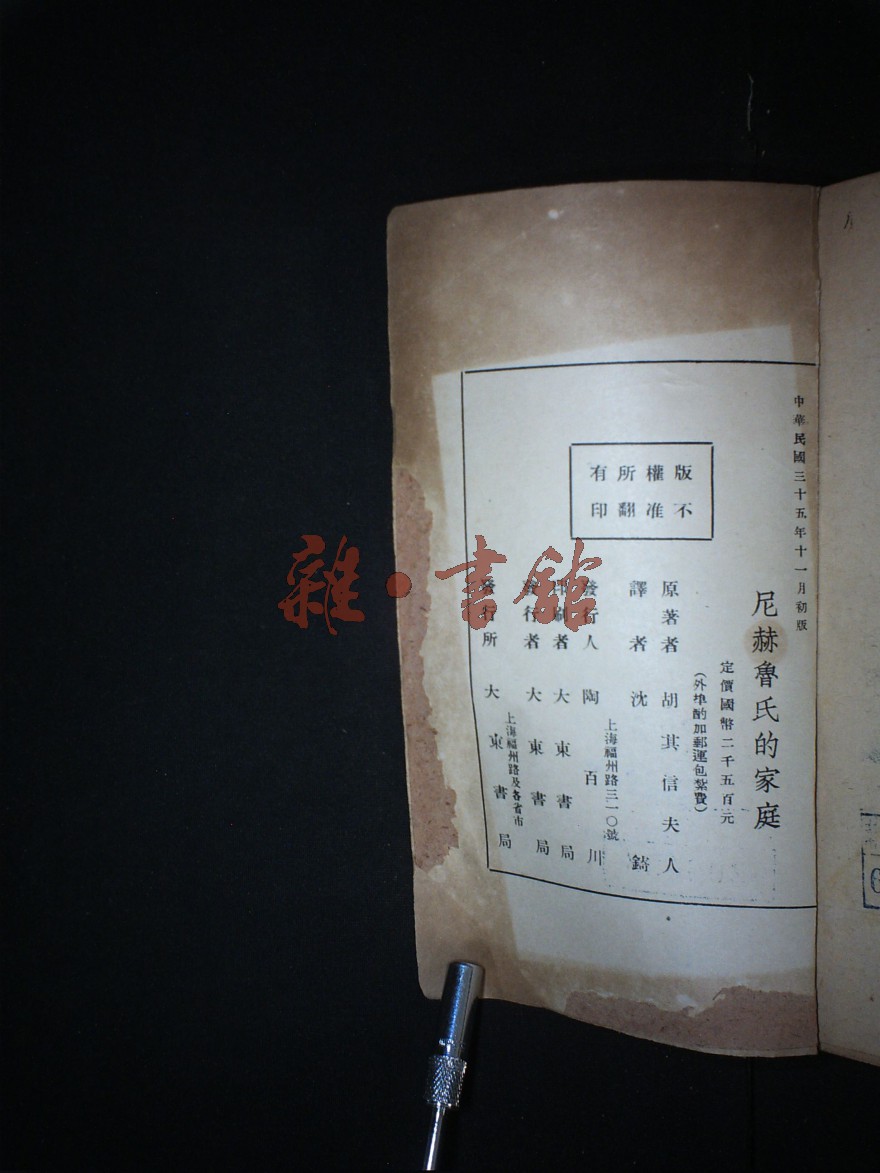 中華民國三十五年十一月初版
尼赫魯氏的家庭
定價國幣二千五百元
(外埠酌加郵運包紮費)
版權所有
不准翻印
原著者 胡其信夫人
譯者 沈鑄
發行人 陶百川
上海福州路三一〇號
印刷者 大東書局
發行者 大東書局
上海福州路及各省市
發行所 大東書局
雜·書館